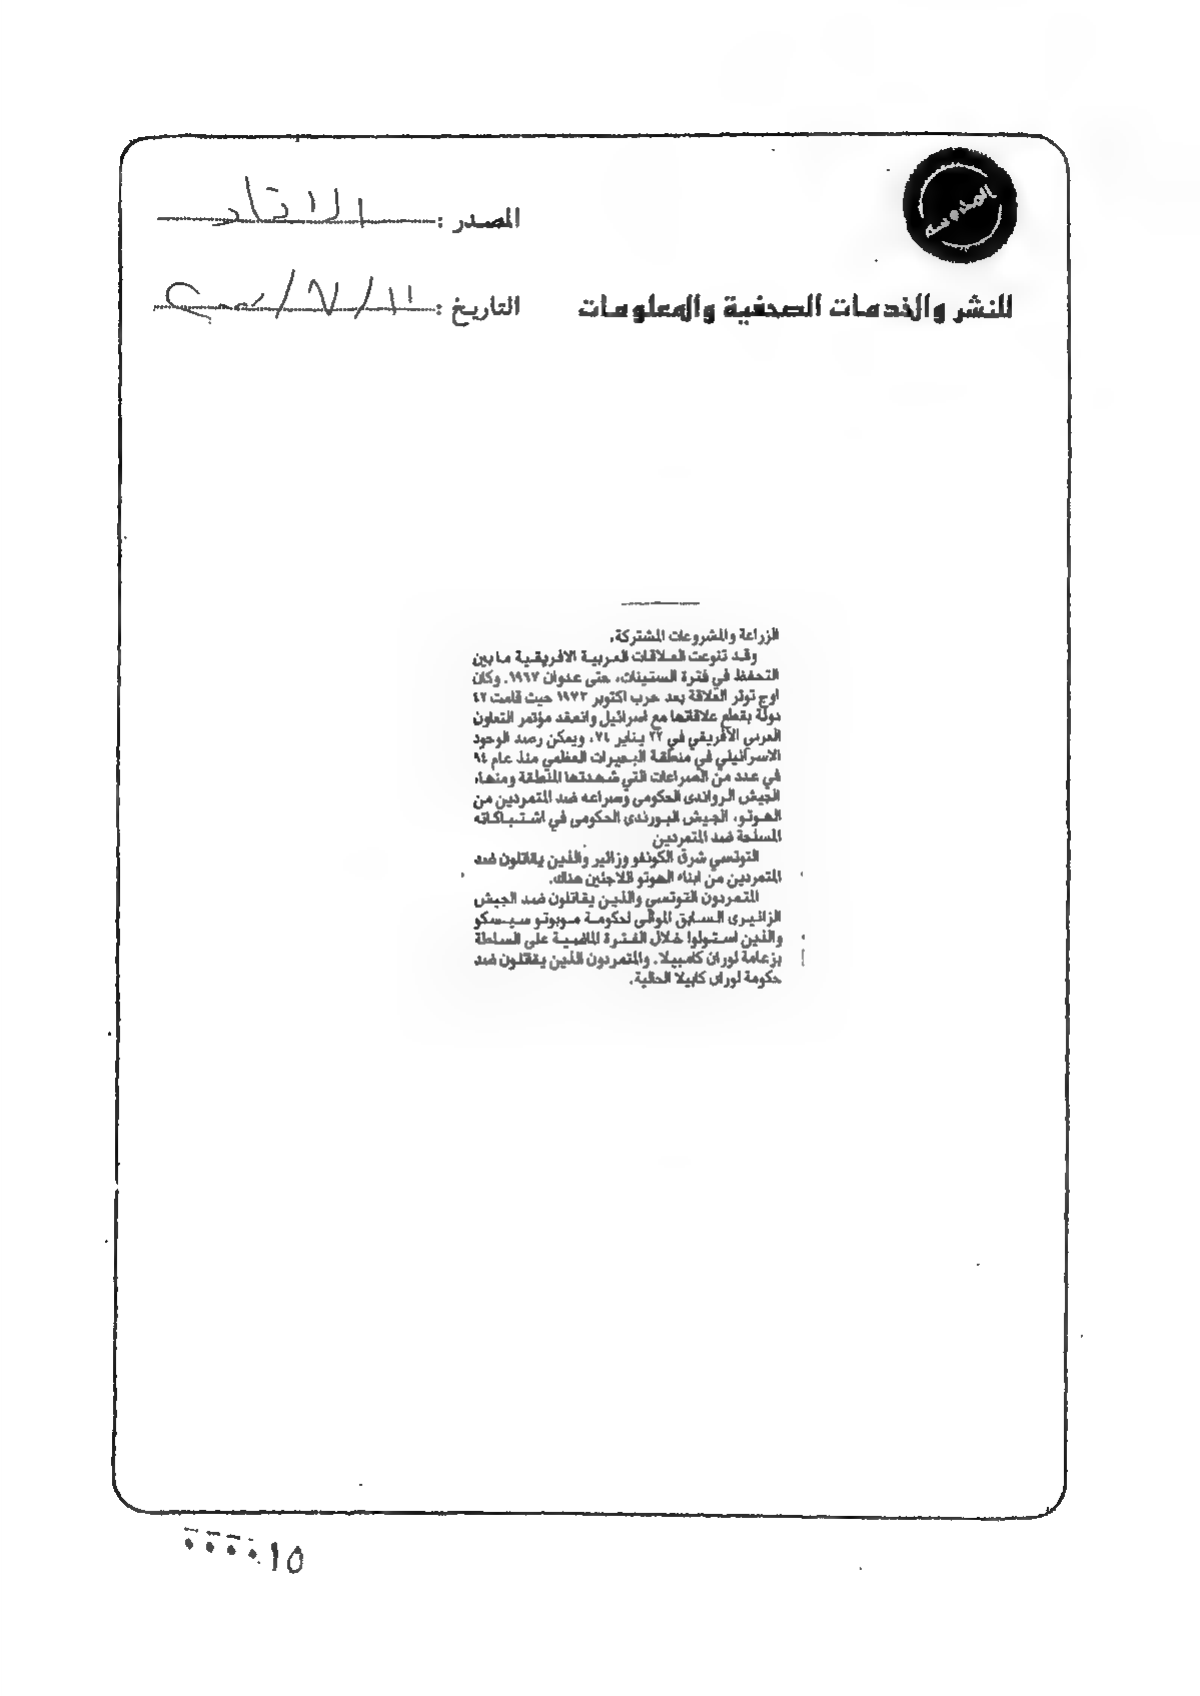 المصدر : الاتحاد
للنشر والخدمات الصحفية والمعلومات
التاريخ : ١١/٧/
الزراعة والمشروعات المشتركة،
وقد تنوعت العلاقات العربية الافريقية ما بين
التحفظ في فترة الستينات، حتى عدوان ١٩٦٧. وكان
اوج توتر العلاقة بعد حرب اكتوبر ١٩٧٣ حيث قامت ٤٢
دولة بقطع علاقاتها مع اسرائيل وانعقد مؤتمر التعاون
العربي الأفريقي في ٢٢ يناير ٧٤، ويمكن رصد الوجود
الاسرائيلي في منطقة البحيرات العظمى منذ عام ٩٤
في عدد من الصراعات التي شهدتها المنطقة ومنها،
الجيش الرواندى الحكومى وصراعه ضد المتمردين من
الهوتو، الجيش البورندى الحكومى في اشتباكاته
المسلحة ضد المتمردين
التوتسي شرق الكونغو وزائير والذين يقاتلون ضد
المتمردين من ابناء الهوتو اللاجئين هناك.
المتمردون التوتسي والذين يقاتلون ضد الجيش
الزائيرى السابق الموالى لحكومة موبوتو سيسكو
والذين استولوا خلال الفترة الماضية على السلطة
بزعامة لوران كامبيلا. والمتمردون الذين يقاتلون ضد
حكومة لوران كابيلا الحالية.